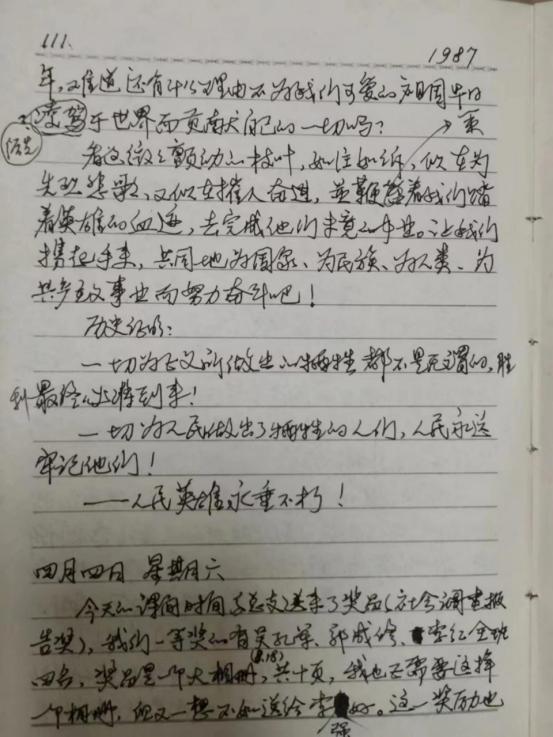 111.
1987
年,难道还有什么理由不为我们可爱的祖国早日
凌驾于世界而贡献自己的一切吗?
看这微微颤动的枝叶,如泣如诉,似在为
先烈悲歌,又似在摧人奋进,并鞭 着我们踏
着英雄的血迹,去完成他们未竟的事业。让我们
携起手来,共同地为国家、为民族、为人类、为
共产主义事业而努力奋斗吧!
历史证明:
一切为正义所做出的牺牲都不是无谓的,胜
利最终必将到来!
一切为人民做出了牺牲的人们,人民永远
牢记他们!
——人民英雄永垂不朽!
四月四日 星期六
今天的课间时间 总支送来了奖品(社会调查报
告奖),我们一等奖的有吴 、郭成 、 红全班
四名,奖品是一个大相册,共十页,我也正需要这样
一个相册,但又一想不如送给李 好。这一奖历也